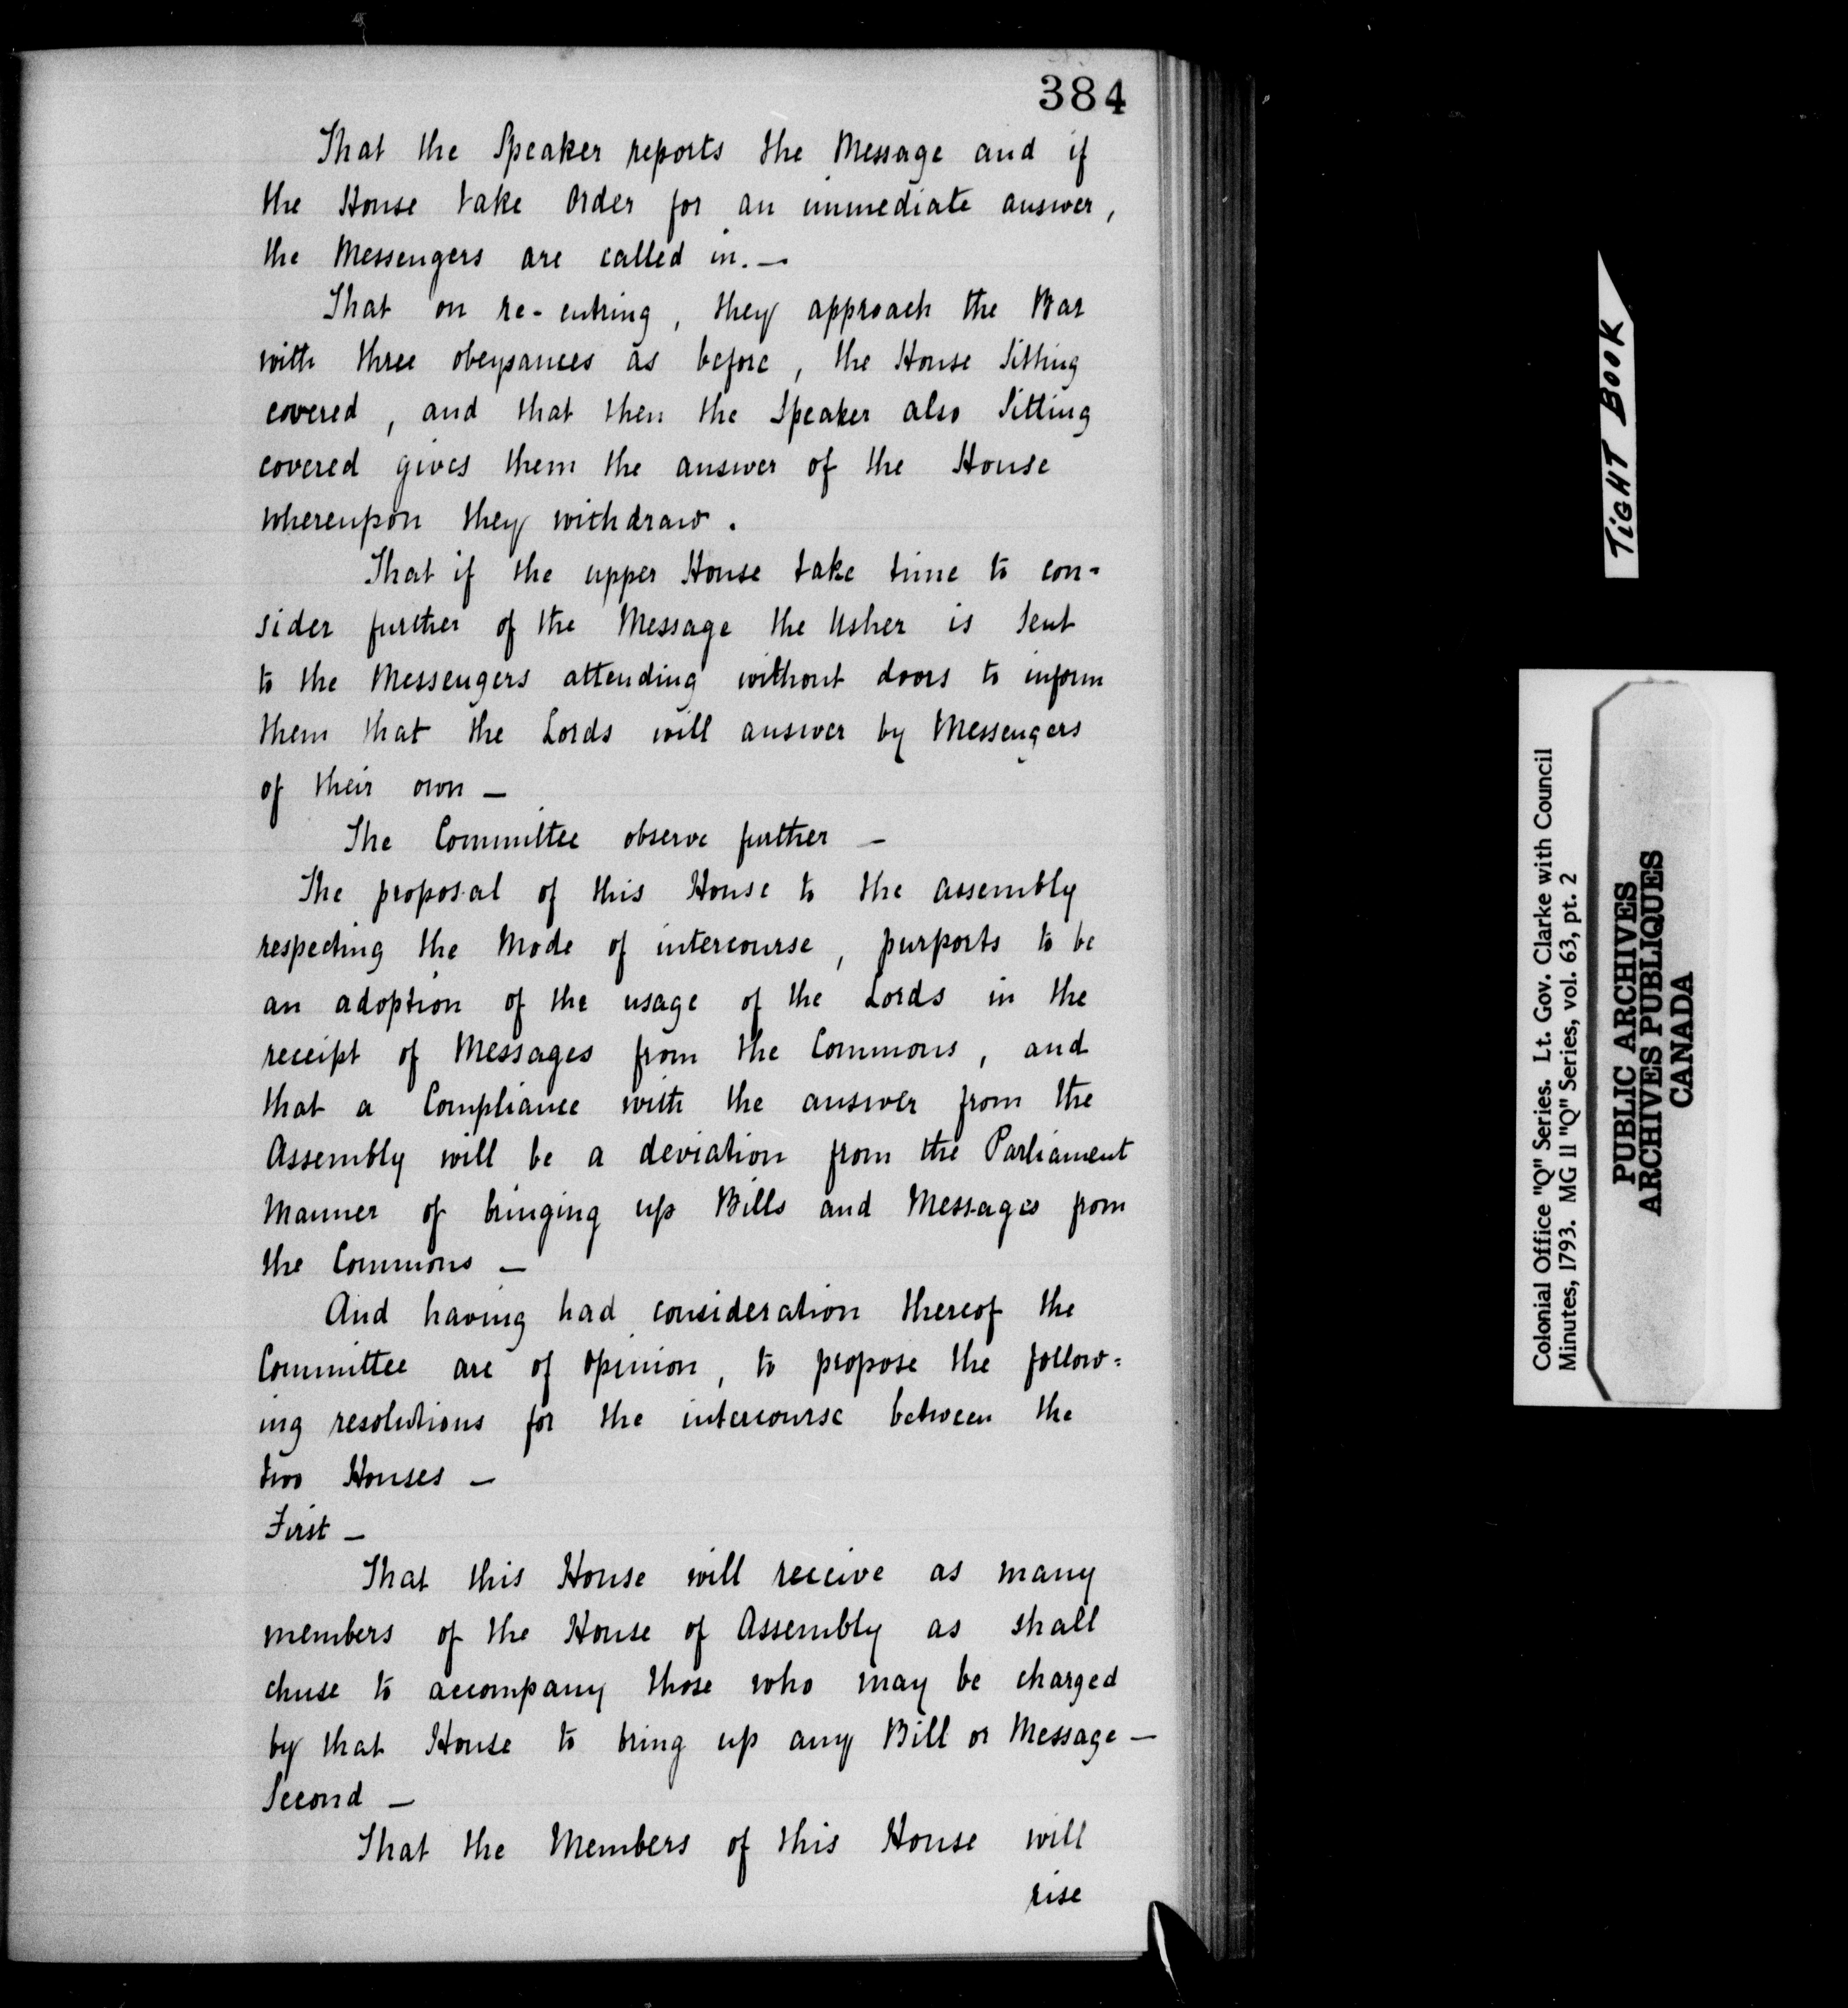 384
That the Speaker reports the Message and if
the House take Order for an immediate answer,
the Messengers are called in. —
That on re-entring, they approach the Bar
with three obeysances as before, the House Sitting
covered, and that then the Speaker also Sitting
covered gives them the answer of the House
whereupon they withdraw.
That if the upper House take time to con-
sider further of the Message the Usher is Sent
to the Messengers attending without doors to inform
them that the Lords will answer by Messengers
of their own —
The Committee observe further —
The proposal of this House to the assembly
respecting the Mode of intercourse, purports to be
an adoption of the usage of the Lords in the
receipt of Messages from the Commons, and
that a Compliance with the answer from the
Assembly will be a deviation from the Parliament
Manner of bringing up Bills and Messages from
the Commons —
And having had consideration thereof the
Committee are of opinion, to propose the follow=
ing resolutions for the intercourse between the
two Houses —
First —
That this House will receive as many
members of the House of Assembly as shall
chuse to accompany those who may be charged
by that House to bring up any Bill or Message —
Second —
That the Members of this House will
rise
TIGHT BOOK
Colonial Office "Q" Series. Lt. Gov. Clarke with Council
Minutes, 1793. MG 11 "Q" Series, vol. 63, pt. 2
PUBLIC ARCHIVES
ARCHIVES PUBLIQUES
CANADA